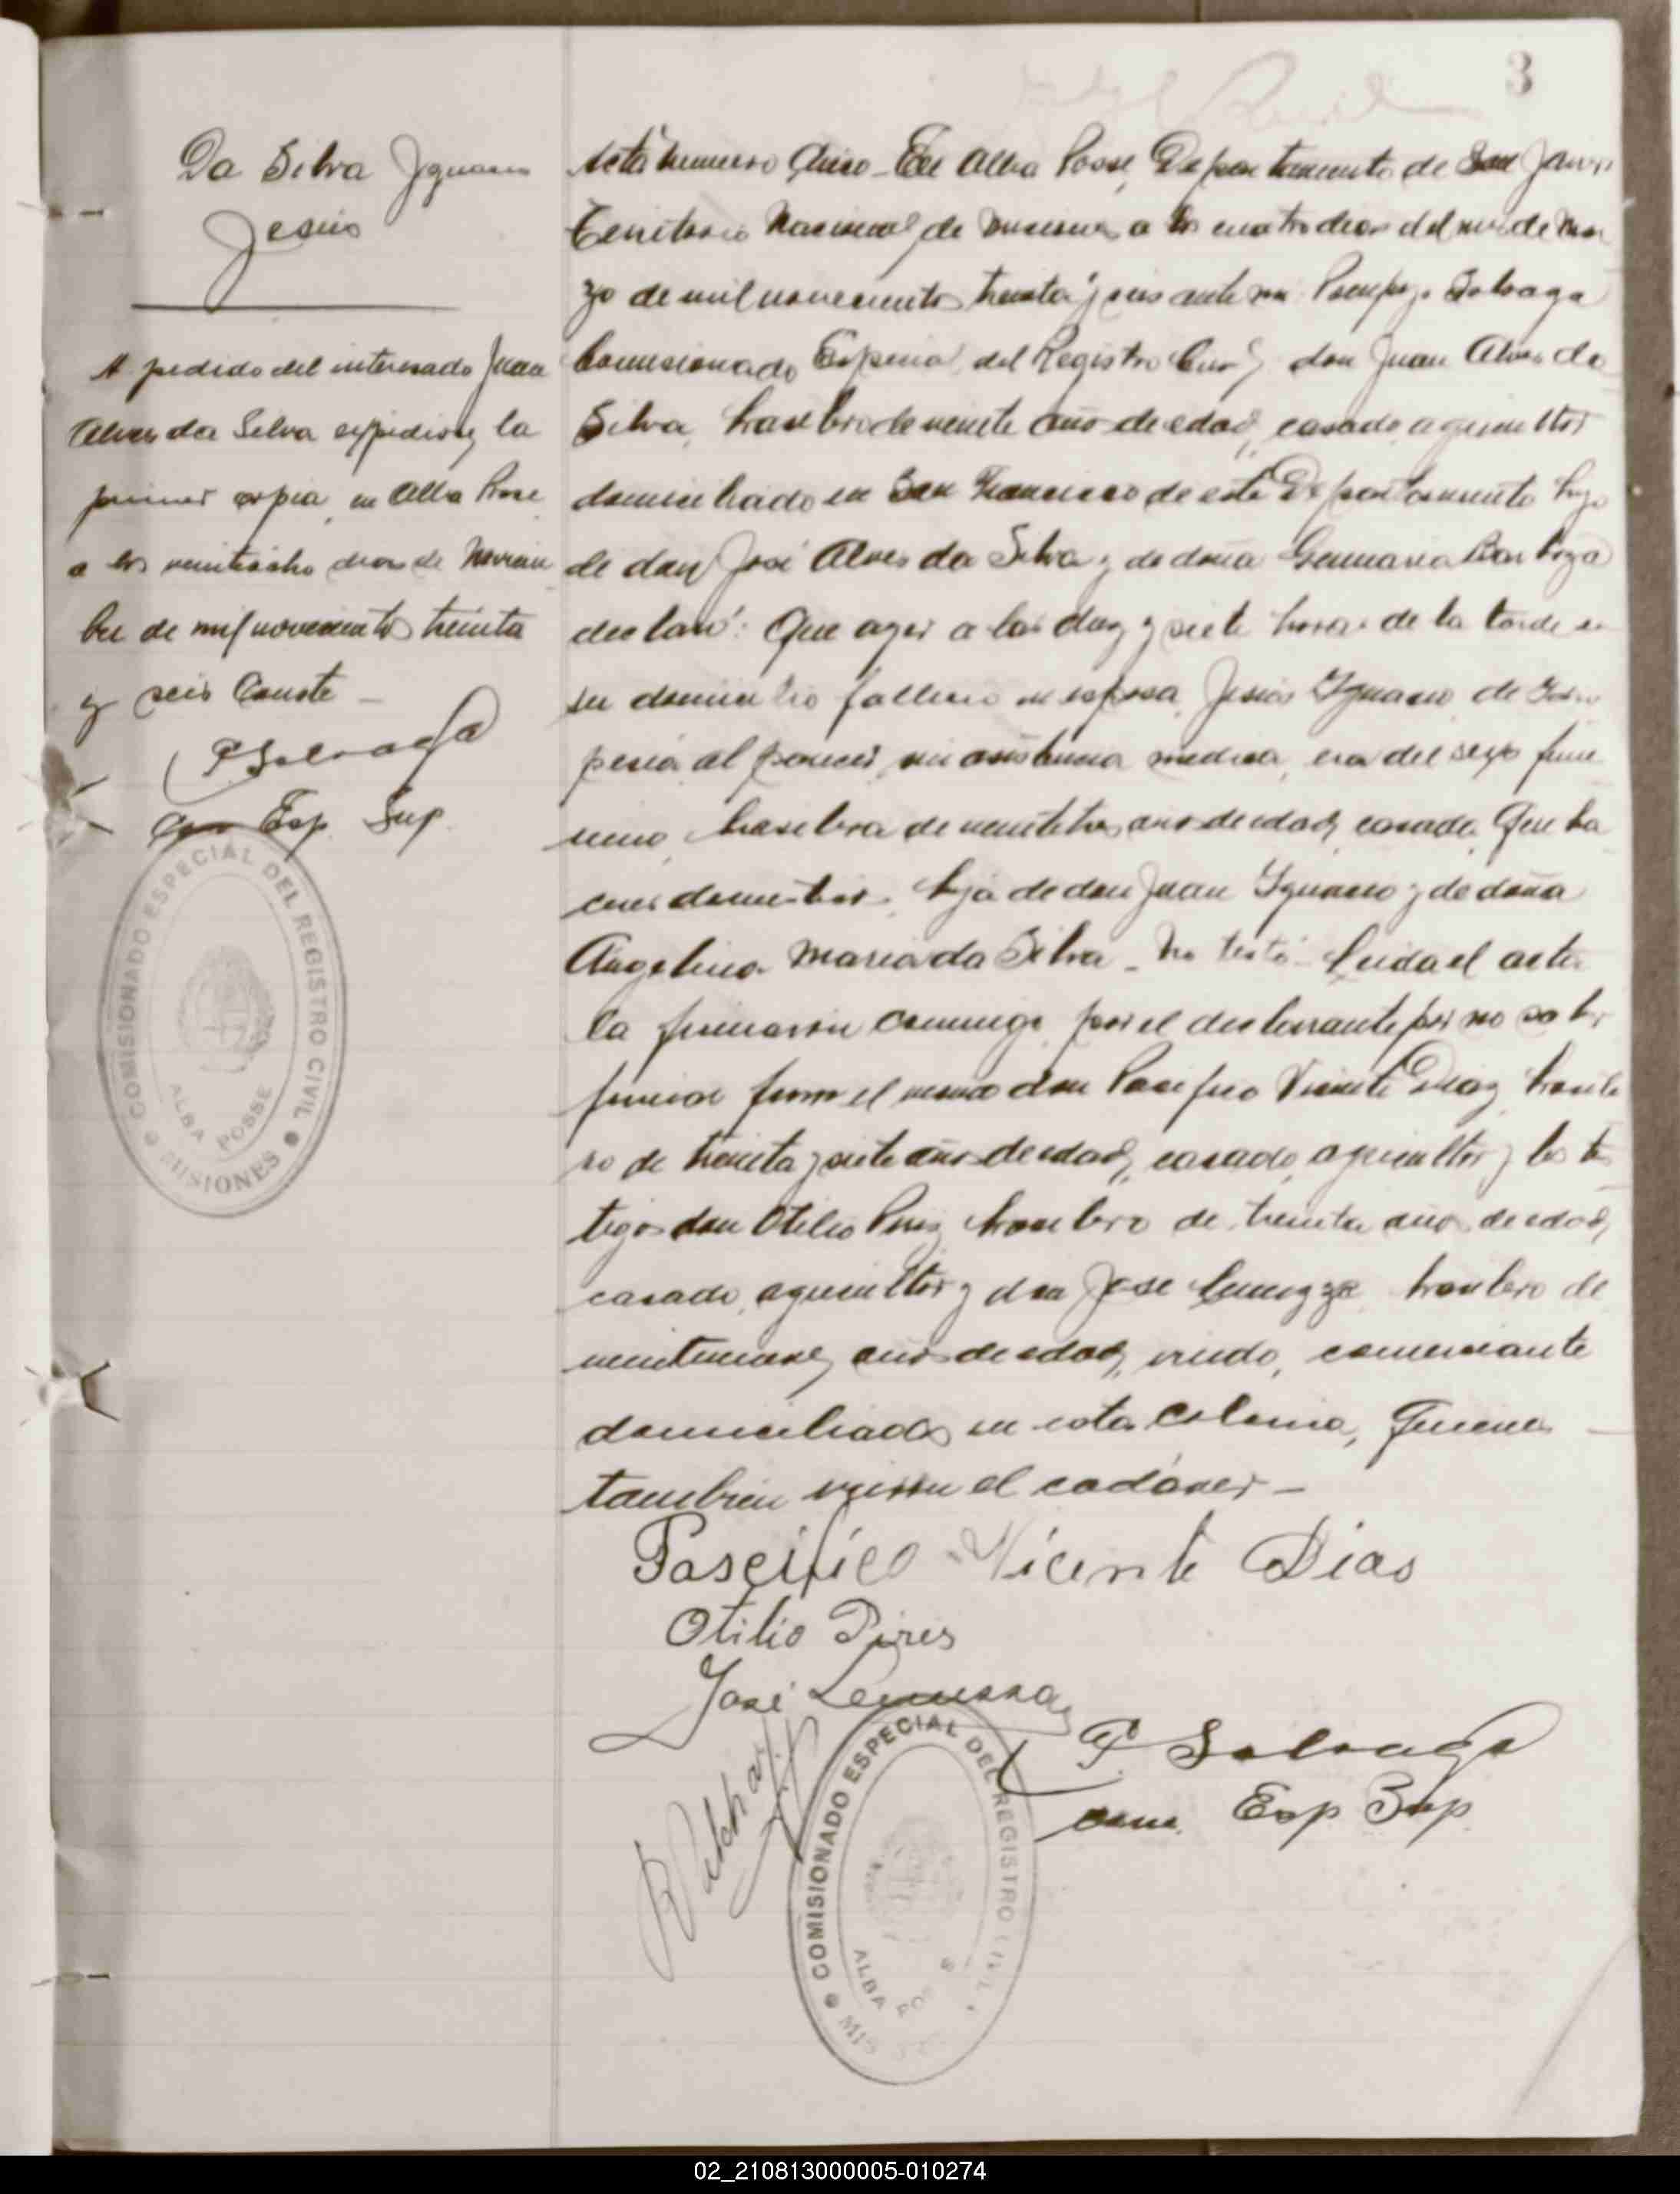 3
Da Silva Ignacio
Jesús
A pedido del interesado Juan
Alves da Silva expidiose la
primer copia, en Alba Posse
a los veintiocho dias de Noviem
bre de mil novecientos treinta
y seis Conste
P Salvaga
Esp. Sup.
COMISIONADO ESPECIAL DEL REGISTRO CIVIL
ALBA POSSE
MISIONES
Acta numero Cinco - En Alba Posse, Departamento de San Javier
Territorio Nacional de Misiones a los cuatro dias del mes de Mar
zo de mil novecientos treinta y seis ante mi Salvaga
Comisionado Especial del Registro Civil don Juan Alves da
Silva, brasilero de veinte años de edad, casado, agricultor
domiciliado en San Francisco de este Departamento hijo
de don José Alves da Silva y de doña Barboza
declaró: Que ayer a las diez y siete horas de la tarde en
su domicilio falleció su esposa Jesús Ignacio de
al parecer, sin asistencia medica, era del sexo feme
nino, brasilera de años de edad, casada, Queha
ceres domesticos, hija de don Juan Ignacio y de doña
Angelina Maria da Silva - No testó - Leida el acta
la firmaron conmigo, por el declarante por no saber
firmar firma el vecino don Pacifico Vicente Diaz brasile
ro de treinta y siete años de edad, casado, agricultor y los tes
tigos don Otilio Pires brasilero de treinta años de edad,
casado, agricultor y don José brasilero de
veintinueve años de edad, viudo, comerciante
domiciliados en esta Colonia, Quienes
tambien vieron el cadáver -
Pascifico Vicente Dias
Otilio Pires
José
P. Salvaga
Com. Esp Sup.
COMISIONADO ESPECIAL DEL REGISTRO CIVIL
ALBA POS
MIS
02_210813000005-010274